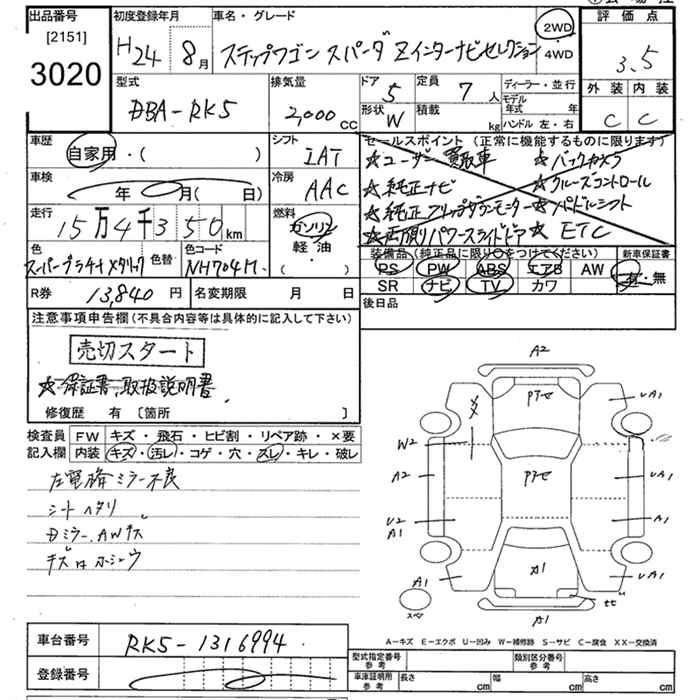 出品番号 [2151] 3020
初度登録年月 H24 8月
車名・グレード ステップワゴン スパーダ Zインターナビセレクション
2WD
4WD
評価点 3.5
外装 内装
C C
型式 DBA-RK5
排気量 2,000 CC
ドア 5
形状 W
定員 7人
積載 kg
ディーラー・並行
モデル年式 年
ハンドル 左・右
車歴 自家用・( )
シフト IAT
車検 年 月( 日)
冷房 AAC
走行 15万4千350km
燃料 ガソリン 軽油 ・( )
色 スーパープラチナメタリック
色替
色コード NH704M
R券 13,840円
名変期限 月 日
セールスポイント(正常に機能するものに限ります)
☆ユーザー買取車 ☆バックカメラ
☆純正ナビ ☆クルーズコントロール
☆純正フリップダウンモニター ☆パドルシフト
☆両側パワースライドドア ☆ETC
装備品(純正品に限り○をつけてください) 新車保証書
PS PW ABS エアB AW 有・無
SR ナビ TV カワ
後日品
注意事項申告欄(不具合内容等は具体的に記入して下さい)
売切スタート
☆保証書、取扱説明書
修復歴 有〔箇所 〕
検査員記入欄
FW キズ・飛石・ヒビ割・リペア跡・×要
内装 キズ・汚レ・コゲ・穴・スレ・キレ・破レ
左電格ミラー不良
シートヘタリ
Dミラー、AWキズ
キズはホシュウ
A2
PテE
UA1
W2
A2
PテE
UA1
U2
A1
A1
A1
A1
UA1
スペア
A1
A-キズ E-エクボ U-凹み W-補修跡 S-サビ C-腐食 XX-交換済
車台番号 RK5-1316994
登録番号
型式指定番号 参考
類別区分番号 参考
車庫証明用 参考 長さ cm 幅 cm 高さ cm